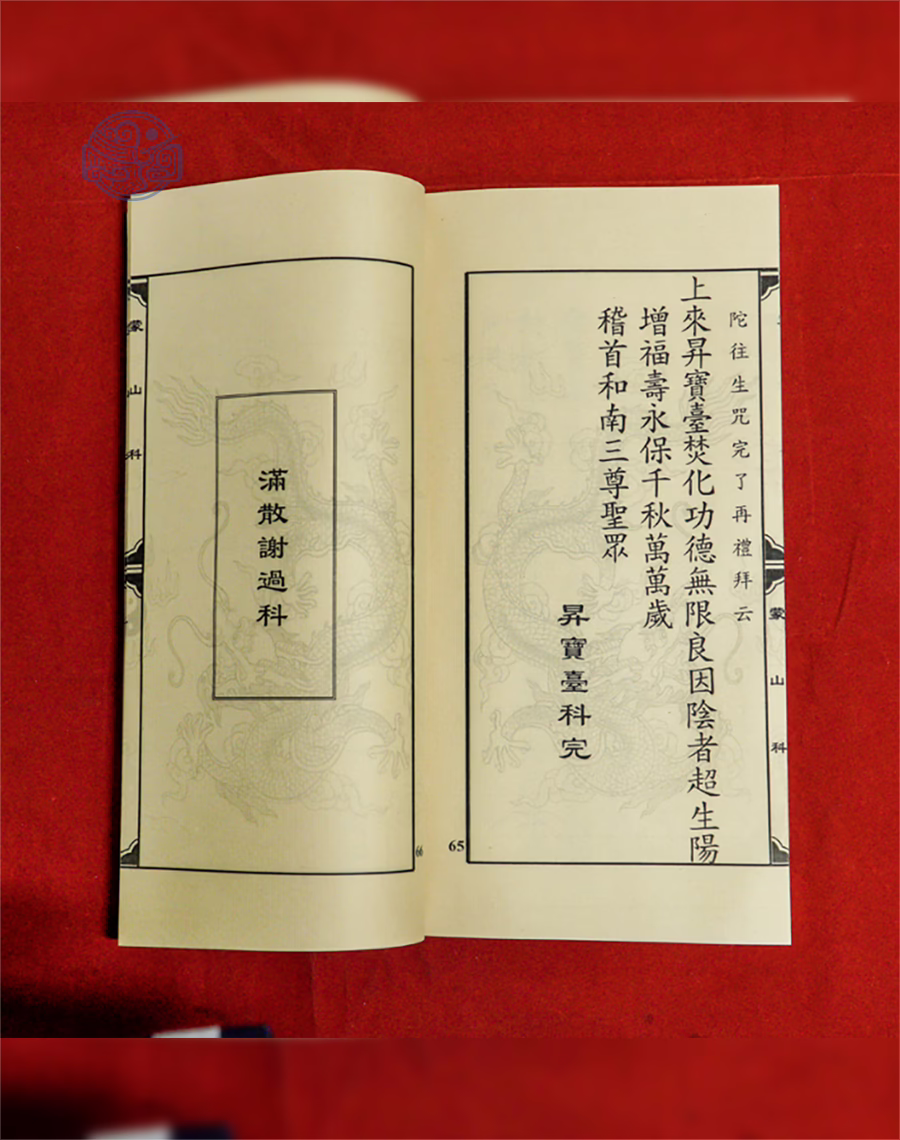 陀往生咒完了再禮拜云
上來昇寶臺焚化功德無限良因陰者超生陽
增福壽永保千秋萬萬歲
稽首和南三尊聖眾
昇寶臺科完
蒙山科
65
滿散謝過科
蒙山科
66